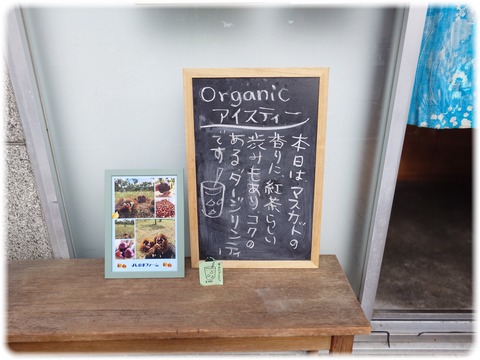 Organic
アイスティー
本日はマスカットの
香りに、紅茶らしい
渋みもあり、コクの
あるダージリンティ
です!